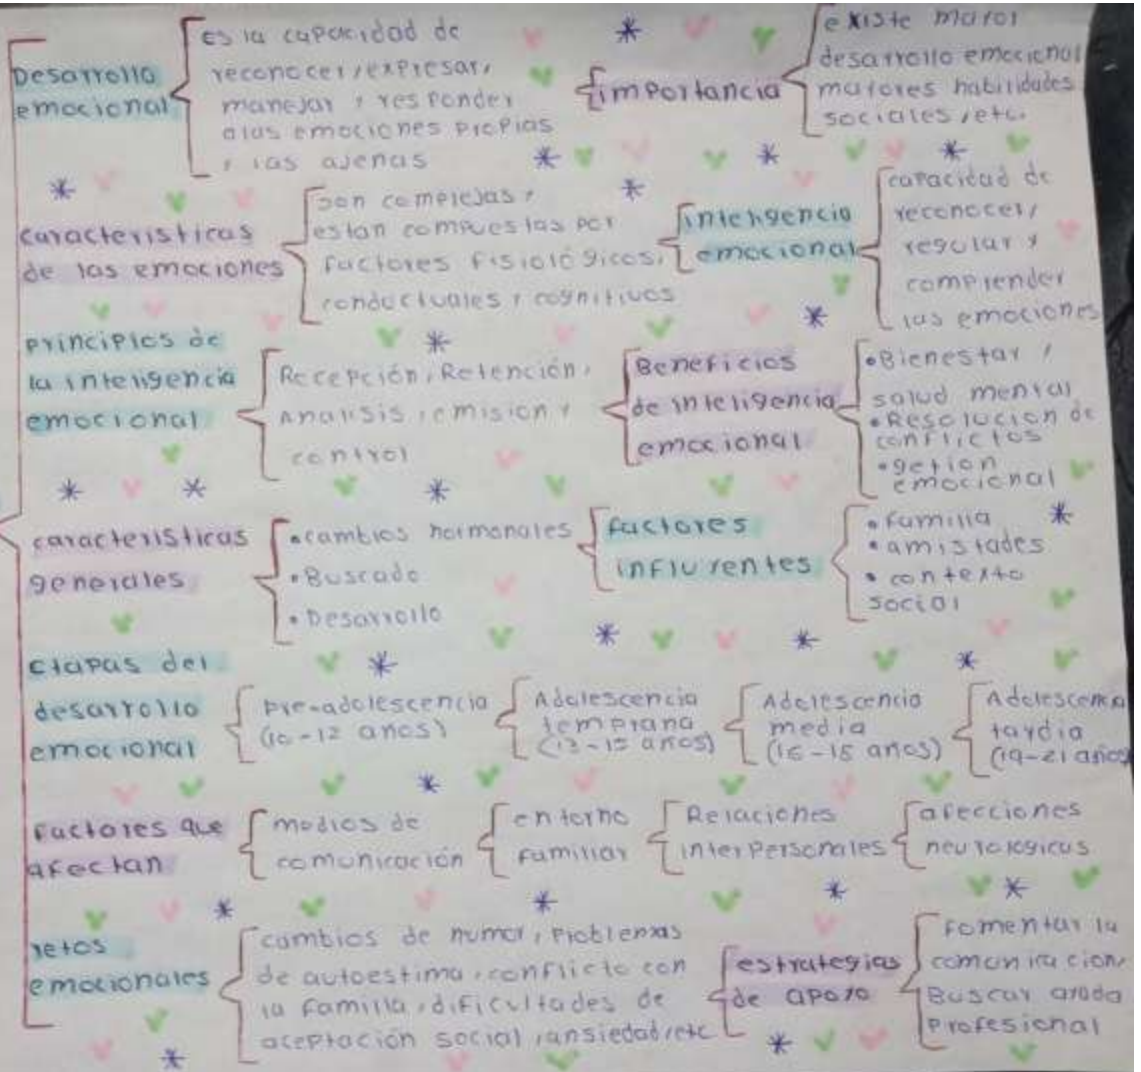 Desarrollo
emocional
es la capacidad de
reconocer, expresar,
manejar y responder
a las emociones propias
y las ajenas
importancia
existe mayor
desarrollo emocional
mayores habilidades
sociales, etc.
caracteristicas
de las emociones
son complejas y
estan compuestas por
factores fisiológicos,
conductuales y cognitivos
inteligencia
emocional
capacidad de
reconocer,
regular y
comprender
las emociones
principios de
la inteligencia
emocional
Recepción, Retención,
Analisis, emision y
control
Beneficios
de inteligencia
emocional
•Bienestar y
salud mental
•Resolucion de
conflictos
•getion
emocional
caracteristicas
generales
•cambios hormonales
•Buscado
•Desarrollo
factores
influyentes
•familia
•amistades
•contexto
social
etapas del
desarrollo
emocional
pre-adolescencia
(10-12 años)
Adolescencia
temprana
(13-15 años)
Adolescencia
media
(16-18 años)
Adolescencia
tardia
(19-21 años)
factores que
afectan
medios de
comunicación
entorno
familiar
Relaciones
interpersonales
afecciones
neurologicas
retos
emocionales
cambios de humor, problemas
de autoestima, conflicto con
la familia, dificultades de
aceptación social, ansiedad, etc
estrategias
de apoyo
fomentar la
comunicacion,
Buscar ayuda
profesional